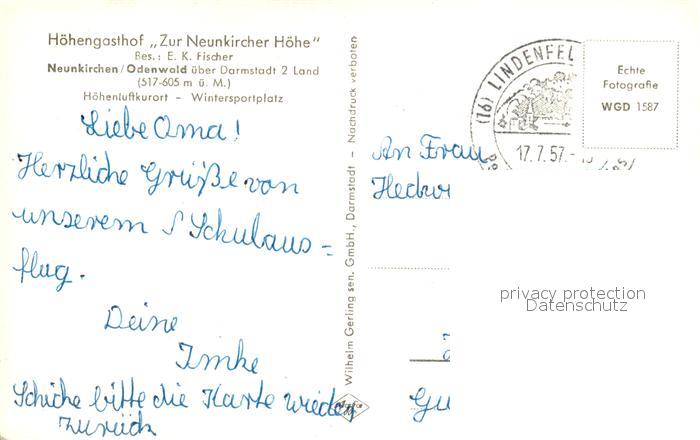 Höhengasthof „Zur Neunkircher Höhe"
Bes.: E. K. Fischer
Neunkirchen/Odenwald über Darmstadt 2 Land
(517-605 m ü. M.)
Höhenluftkurort – Wintersportplatz
Liebe Oma!
Herzliche Grüße von
unserem Schulaus=
flug.
Deine
Imke
Schicke bitte die Karte wieder
zurück
Wilhelm Gerling sen. GmbH., Darmstadt – Nachdruck verboten
(16) LINDENFEL
17.7.57.-
Echte
Fotografie
WGD 1587
An Frau
Hedwi
privacy protection
Datenschutz
Gu